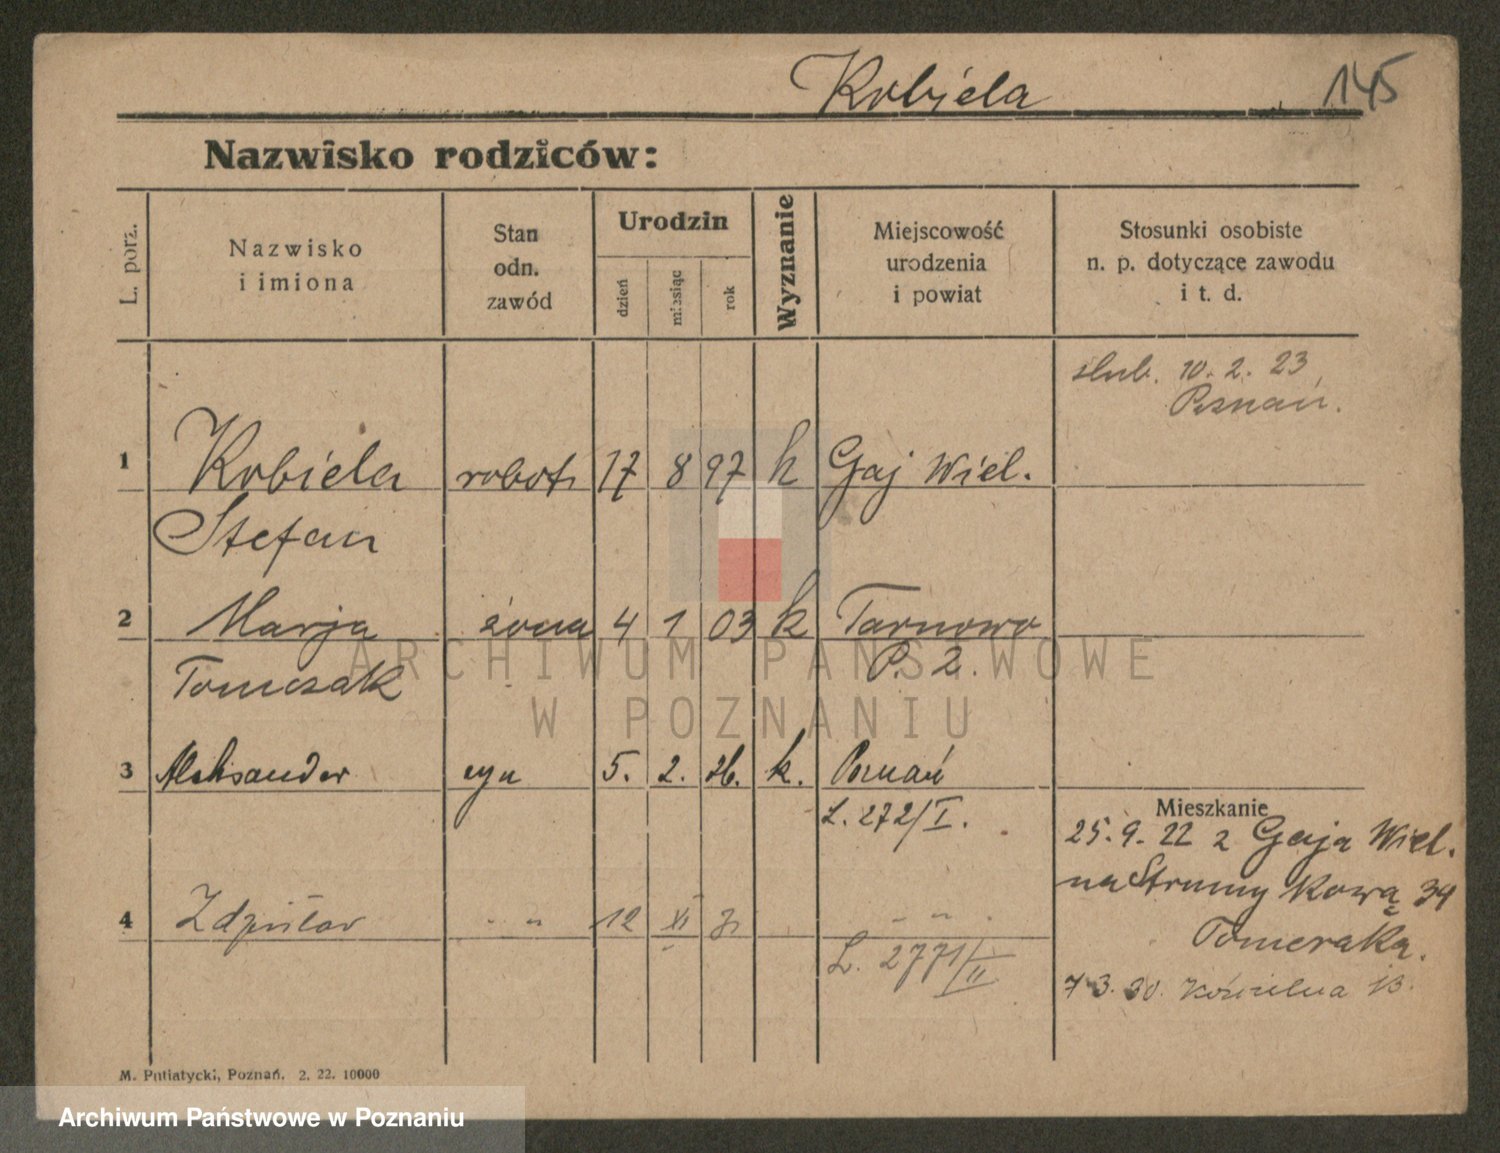 Kobiela 145
Nazwisko rodziców:
L. porz.
Nazwisko
i imiona
Stan
odn.
zawód
Urodzin
dzień
miesiąc
rok
Wyznanie
Miejscowość
urodzenia
i powiat
Stosunki osobiste
n. p. dotyczące zawodu
i t. d.
ślub. 10. 2. 23
Poznań.
1 Kobiela robotn 17 8 97 k Gaj Wiel.
Stefan
2 Marja żona 4 1 03 k Tarnowo
Tomczak P. 2.
3 Aleksander syn 5. 2. 26. k. Poznań
L. 272/I.
Mieszkanie
25. 9. 22 z Gaja Wiel.
na Strumykową 34
4 Zdzisław " 12 XI " 
Tomczaka.
L. 2771/II
7 3. 30. Kościelna 13.
M. Putiatycki, Poznań. 2. 22. 10000
ARCHIWUM PAŃSTWOWE
W POZNANIU
Archiwum Państwowe w Poznaniu